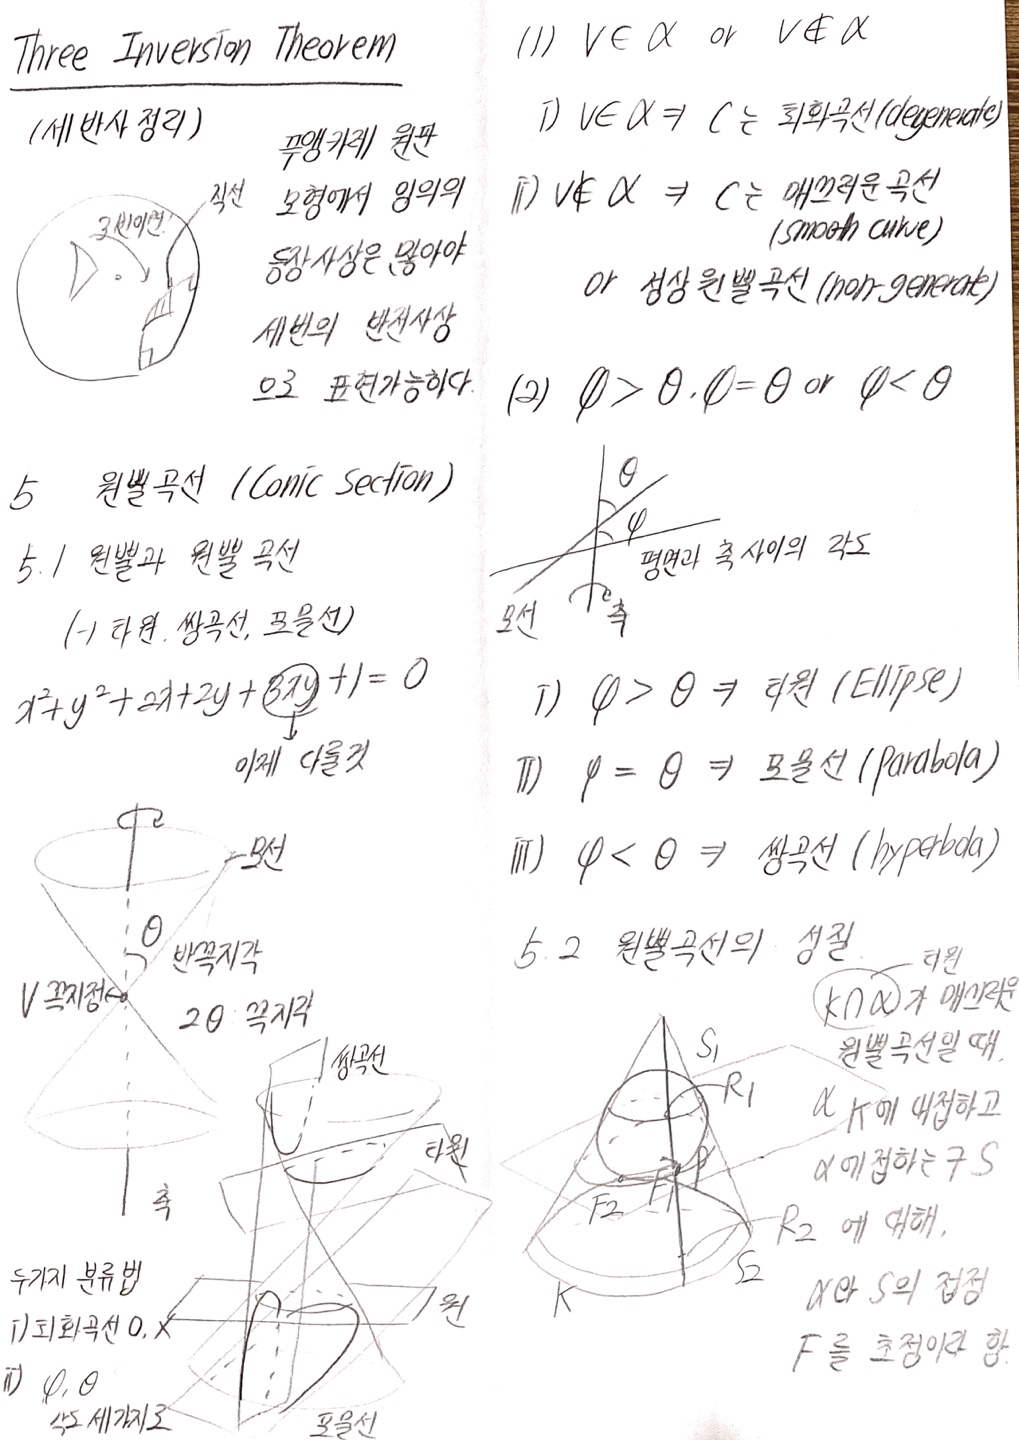 Three Inversion Theorem
(세 반사 정리)
푸앵카레 원판
모형에서 임의의
등장사상은 많아야
세번의 반전사상
으로 표현가능하다.
직선
5 원뿔곡선 (Conic Section)
5.1 원뿔과 원뿔 곡선
(-) 타원. 쌍곡선, 포물선)
x²+y²+2x+2y+3xy+1=0
이제 다룰것
모선
θ
반꼭지각
V 꼭지점
2θ 꼭지각
축
쌍곡선
타원
원
포물선
두가지 분류법
i) 퇴화곡선 O, X
ii) φ, θ
각도 세가지로
(1) V∈α or V∉α
i) V∈α ⇒ C는 퇴화곡선(degenerate)
ii) V∉α ⇒ C는 매끄러운 곡선
(smooth curve)
or 성상 원뿔곡선 (non-generate)
(2) φ>θ, φ=θ or φ<θ
θ
φ
평면과 축 사이의 각도
모선
축
i) φ>θ ⇒ 타원 (Ellipse)
ii) φ=θ ⇒ 포물선 (parabola)
iii) φ<θ ⇒ 쌍곡선 (hyperbola)
5.2 원뿔곡선의 성질
타원
K∩α가 매끄러운
원뿔곡선일 때.
α K에 내접하고
α에 접하는 구 S
에 대해,
α와 S의 접점
F를 초점이라 함.
S1
R1
P
F2
F1
R2
S2
K